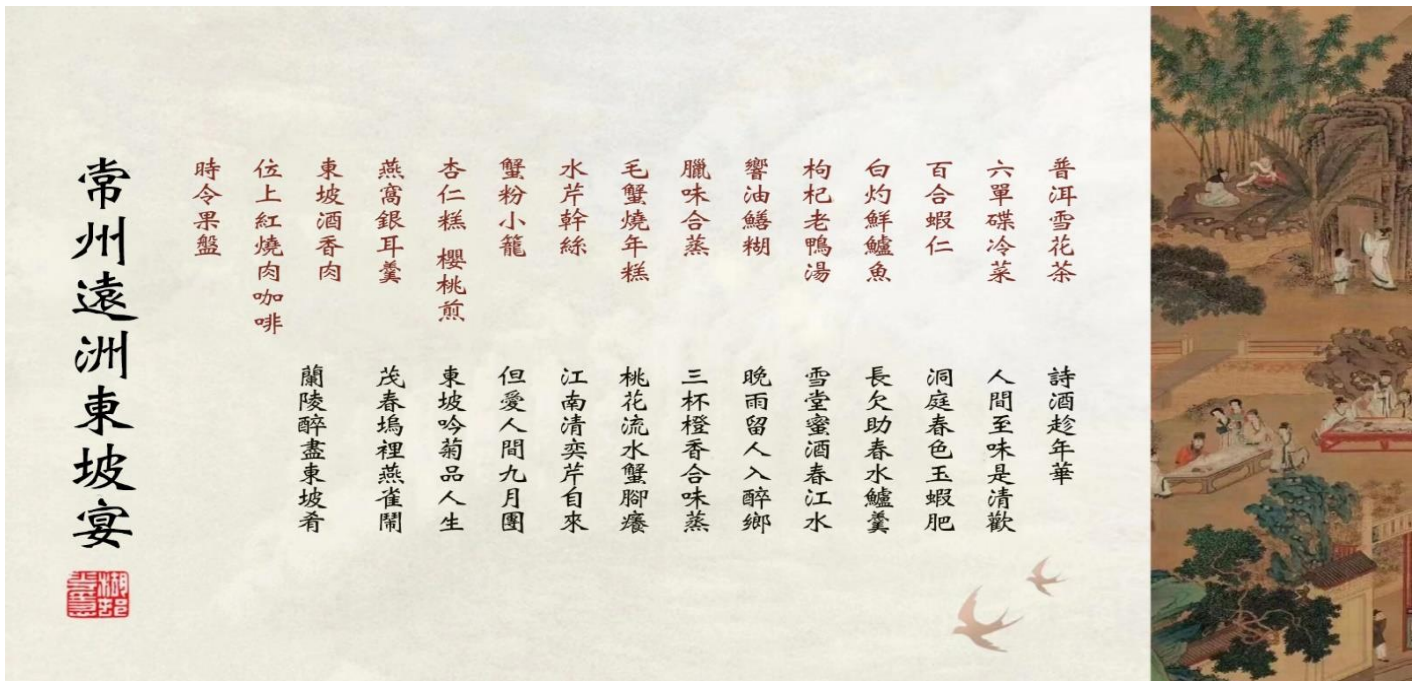 普洱雪花茶
詩酒趁年華
六單碟冷菜
人間至味是清歡
百合蝦仁
洞庭春色玉蝦肥
白灼鮮鱸魚
長欠助春水鱸羹
枸杞老鴨湯
雪堂蜜酒春江水
響油鱔糊
晚雨留人入醉鄉
臘味合蒸
三杯橙香合味蒸
毛蟹燒年糕
桃花流水蟹腳癢
水芹幹絲
江南清奕芹自來
蟹粉小籠
但愛人間九月團
杏仁糕 櫻桃煎
東坡吟菊品人生
燕窩銀耳羹
茂春塢裡燕雀鬧
東坡酒香肉
蘭陵醉盡東坡肴
位上紅燒肉咖啡
時令果盤
常州遠洲東坡宴